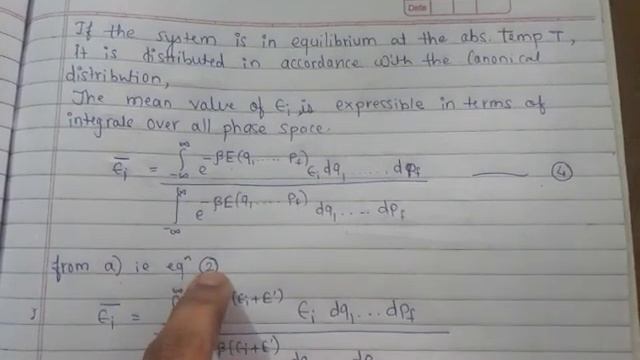 Date
If the system is in equilibrium at the abs. temp T,
it is distributed in accordance with the Canonical
distribution,
The mean value of ϵi is expressible in terms of
integrale over all phase space.
ϵ̄i = ∫_{-∞}^{∞} e^{-βE(q1,.....pf)} ϵi dq1 ..... dpf / ∫_{-∞}^{∞} e^{-βE(q1,.....pf)} dq1 .... dpf ——— ④
from a) ie eqⁿ ②
ϵ̄i = (ϵi+E') ϵi dq1 ... dpf
β(ϵi+E')